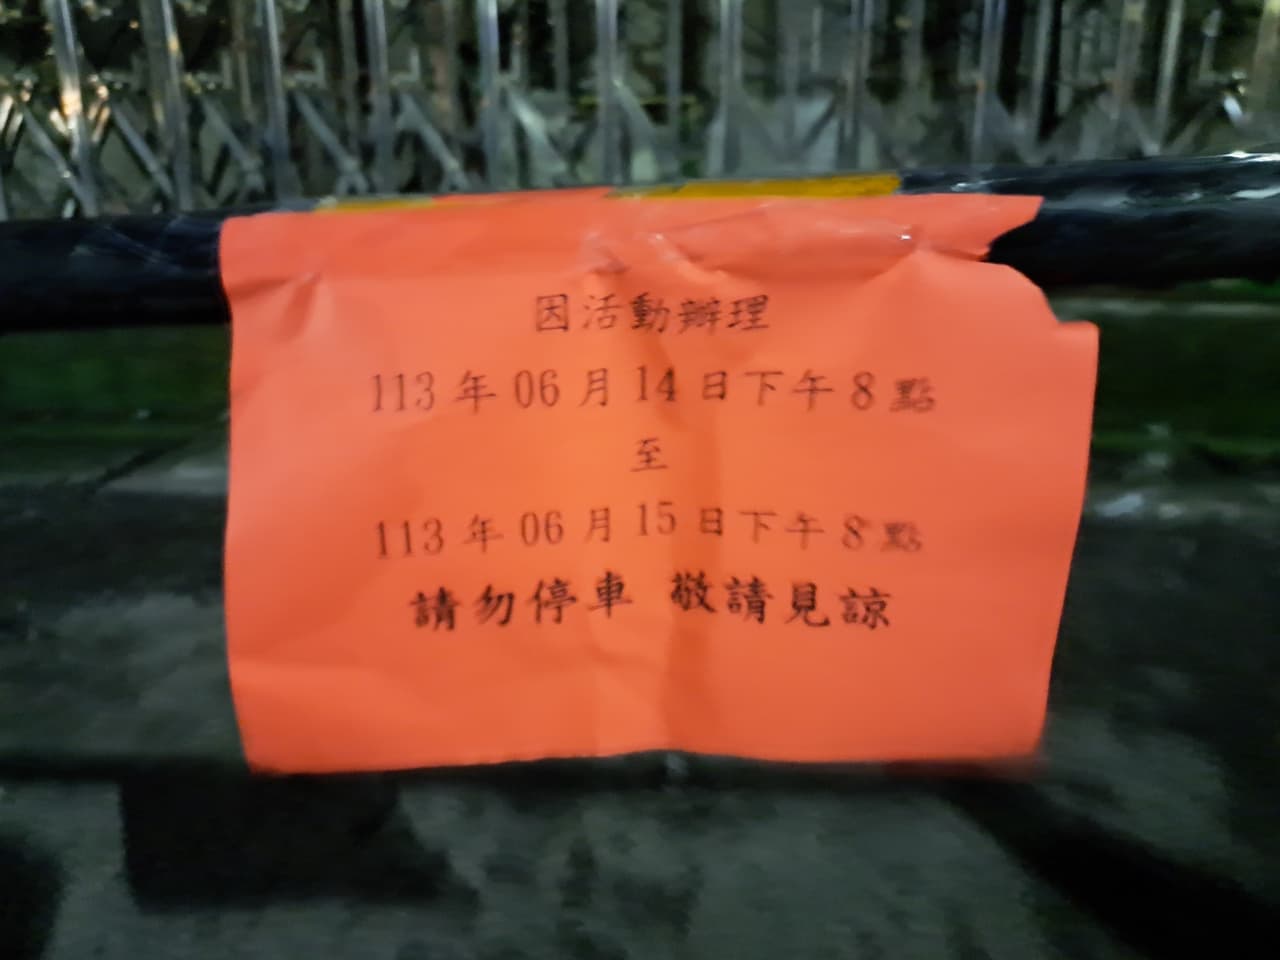 因活動辦理
113 年 06 月 14 日下午 8 點
至
113 年 06 月 15 日下午 8 點
請勿停車 敬請見諒